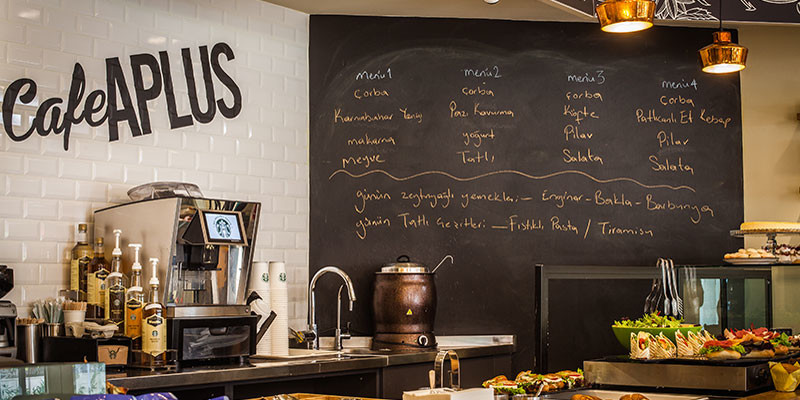 Cafe APLUS
menü1
Çorba
Karnabahar Yemeği
makarna
meyve
menü2
Çorba
Pazı Kavurma
yoğurt
Tatlı
menü3
Çorba
Köfte
Pilav
Salata
menü4
Çorba
Patlıcanlı Et Kebap
Pilav
Salata
günün zeytinyağlı yemekleri - Enginar - Bakla - Barbunya
günün Tatlı Çeşitleri - Fıstıklı Pasta / Tiramisu